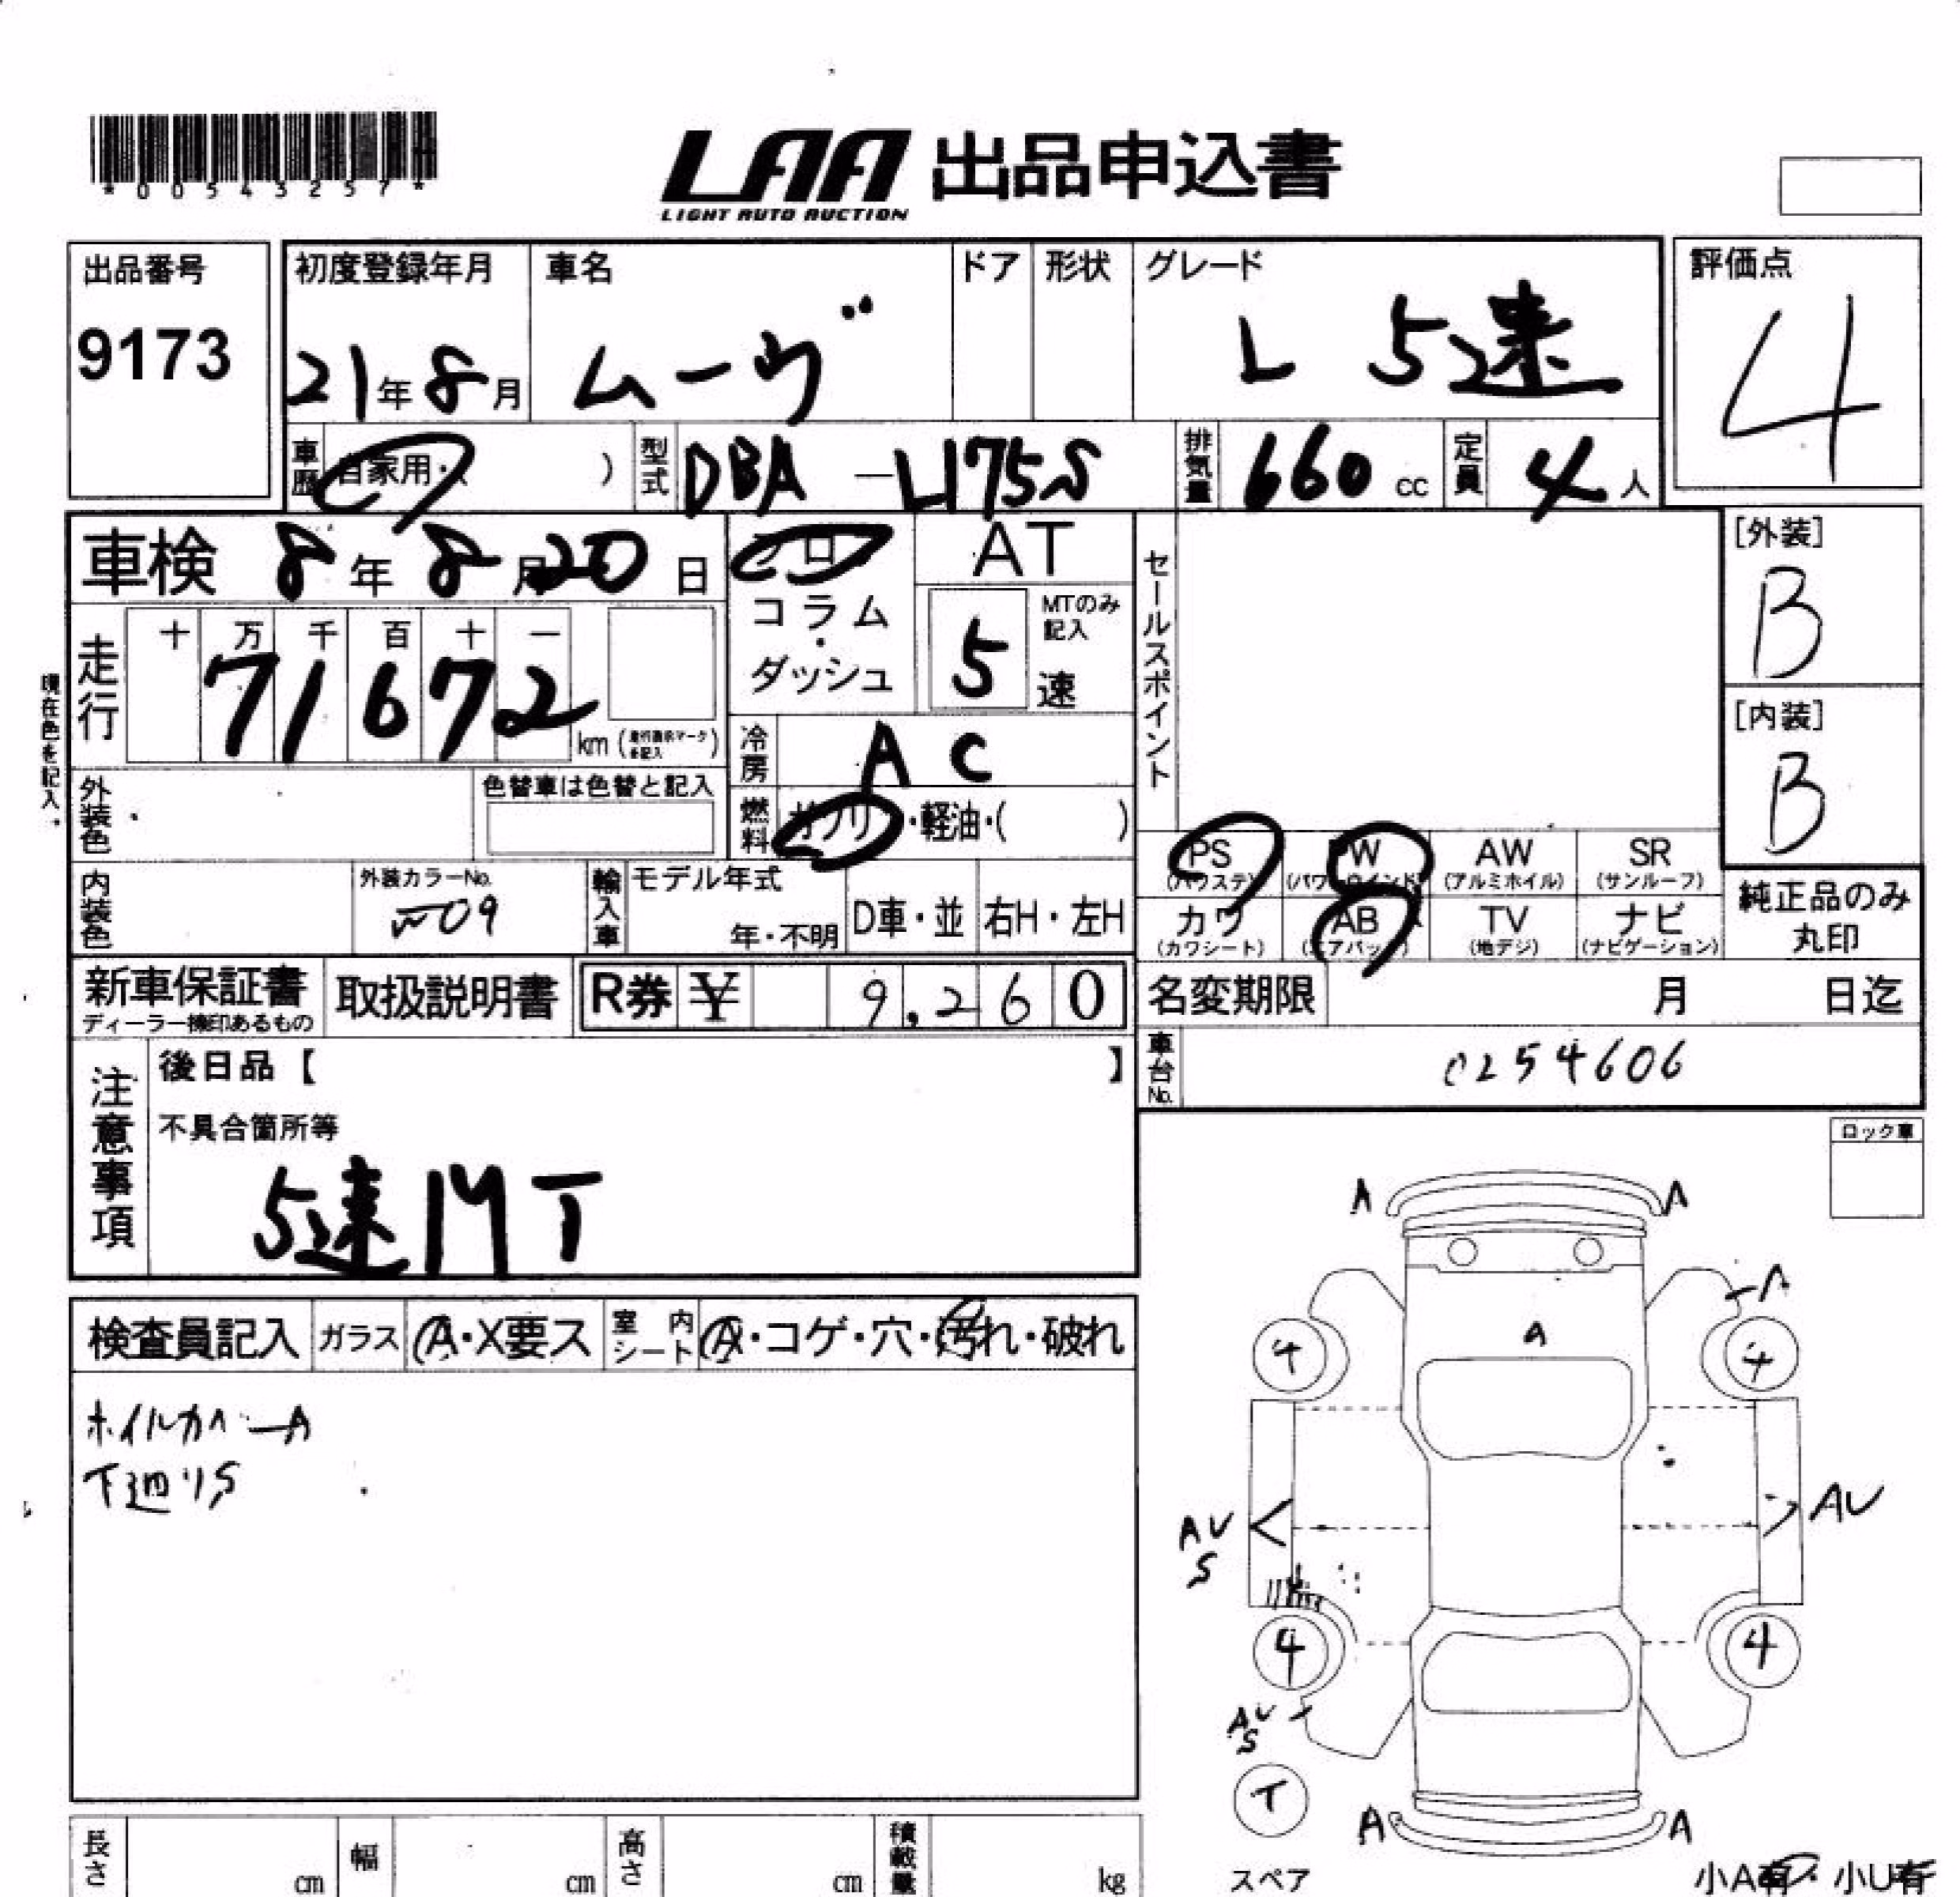 *00543257*
LAA 出品申込書
LIGHT AUTO AUCTION
出品番号
9173
初度登録年月
21年8月
車名
ムーヴ
ドア
形状
グレード
L 5速
評価点
4
車歴 自家用・( )
型式 DBA-L175S
排気量 660 cc
定員 4人
車検 8年8月20日
フロ
コラム・ダッシュ
AT
5速
MTのみ記入
セールスポイント
[外装]
B
[内装]
B
現在色を記入。
走行 十万千百十一
71672 km
冷房 AC
燃料 ガソリ・軽油・( )
外装色
色替車は色替と記入
内装色
外装カラーNo.
W09
輸入車
モデル年式
年・不明
D車・並
右H・左H
PS (パワステ)
PW (パワーウインド)
AW (アルミホイル)
SR (サンルーフ)
カワ (カワシート)
AB (エアバック)
TV (地デジ)
ナビ (ナビゲーション)
純正品のみ丸印
新車保証書
ディーラー捺印あるもの
取扱説明書
R券 ¥ 9,260
名変期限 月 日迄
車台No. 0254606
注意事項
後日品【 】
不具合箇所等
5速MT
ロック車
検査員記入
ガラス A・X要ス
室内シート A・コゲ・穴・汚れ・破れ
ホイルカバーA
下廻りS
A A
A
A
4 4
AV
S
AV
4 4
AV
S
T
スペア
A A
小A有・小U有
長さ cm
幅 cm
高さ cm
積載量 kg